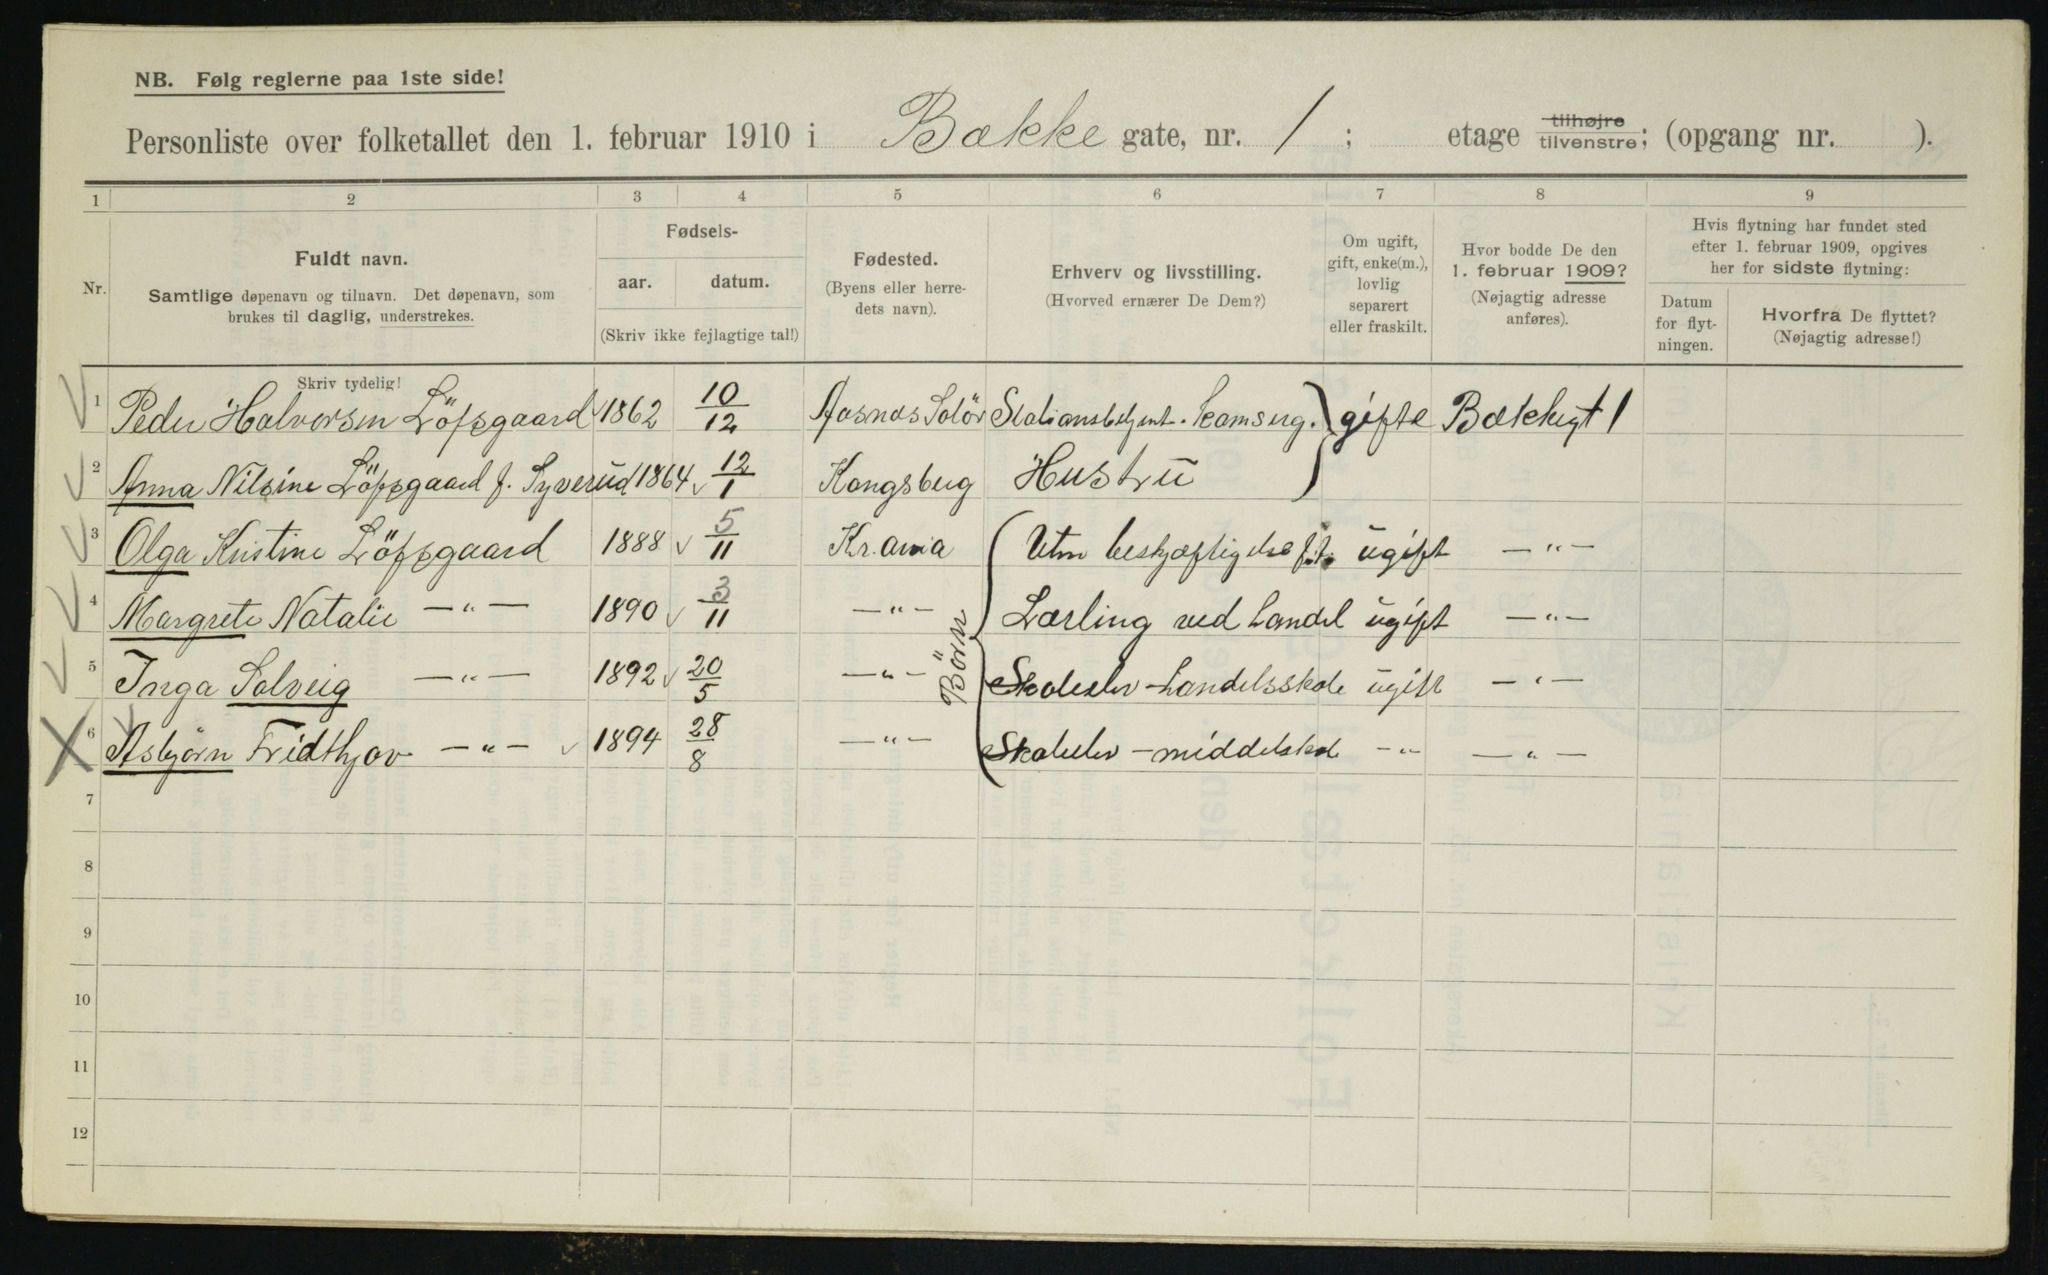 NB. Følg reglerne paa 1ste side!
Personliste over folketallet den 1. februar 1910 i Bække gate, nr. 1 ; etage tilhøjre tilvenstre; (opgang nr. ).
1 2 3 4 5 6 7 8 9
Nr.
Fuldt navn.
Samtlige døpenavn og tilnavn. Det døpenavn, som
brukes til daglig, understrekes.
Skriv tydelig!
Fødsels-
aar. datum.
(Skriv ikke fejlagtige tal!)
Fødested.
(Byens eller herre-
dets navn).
Erhverv og livsstilling.
(Hvorved ernærer De Dem?)
Om ugift,
gift, enke(m.),
lovlig
separert
eller fraskilt.
Hvor bodde De den
1. februar 1909?
(Nøjagtig adresse
anføres).
Hvis flytning har fundet sted
efter 1. februar 1909, opgives
her for sidste flytning:
Datum
for flyt-
ningen.
Hvorfra De flyttet?
(Nøjagtig adresse!)
1 Peder Halvorsen Löfsgaard 1862 10/12 Aasnæs Solör gifte Bækkegt 1
2 Anna Nilsine Löfsgaard f. Syverud 1864 12/1 Kongsberg Hustru
3 Olga Kristine Löfsgaard 1888 5/11 Kr.ania Uten beskjæftigelse f.t. ugift —"—
4 Margrete Natalie —"— 1890 3/11 —"— Lærling ved Handel ugift —"—
5 Inga Solveig —"— 1892 20/5 —"— Skoleelev - Handelsskole ugift —"—
6 Asbjørn Fridthjov —"— 1894 28/8 —"— Skoleelev — middelskole —"— —"—
Börn
7
8
9
10
11
12